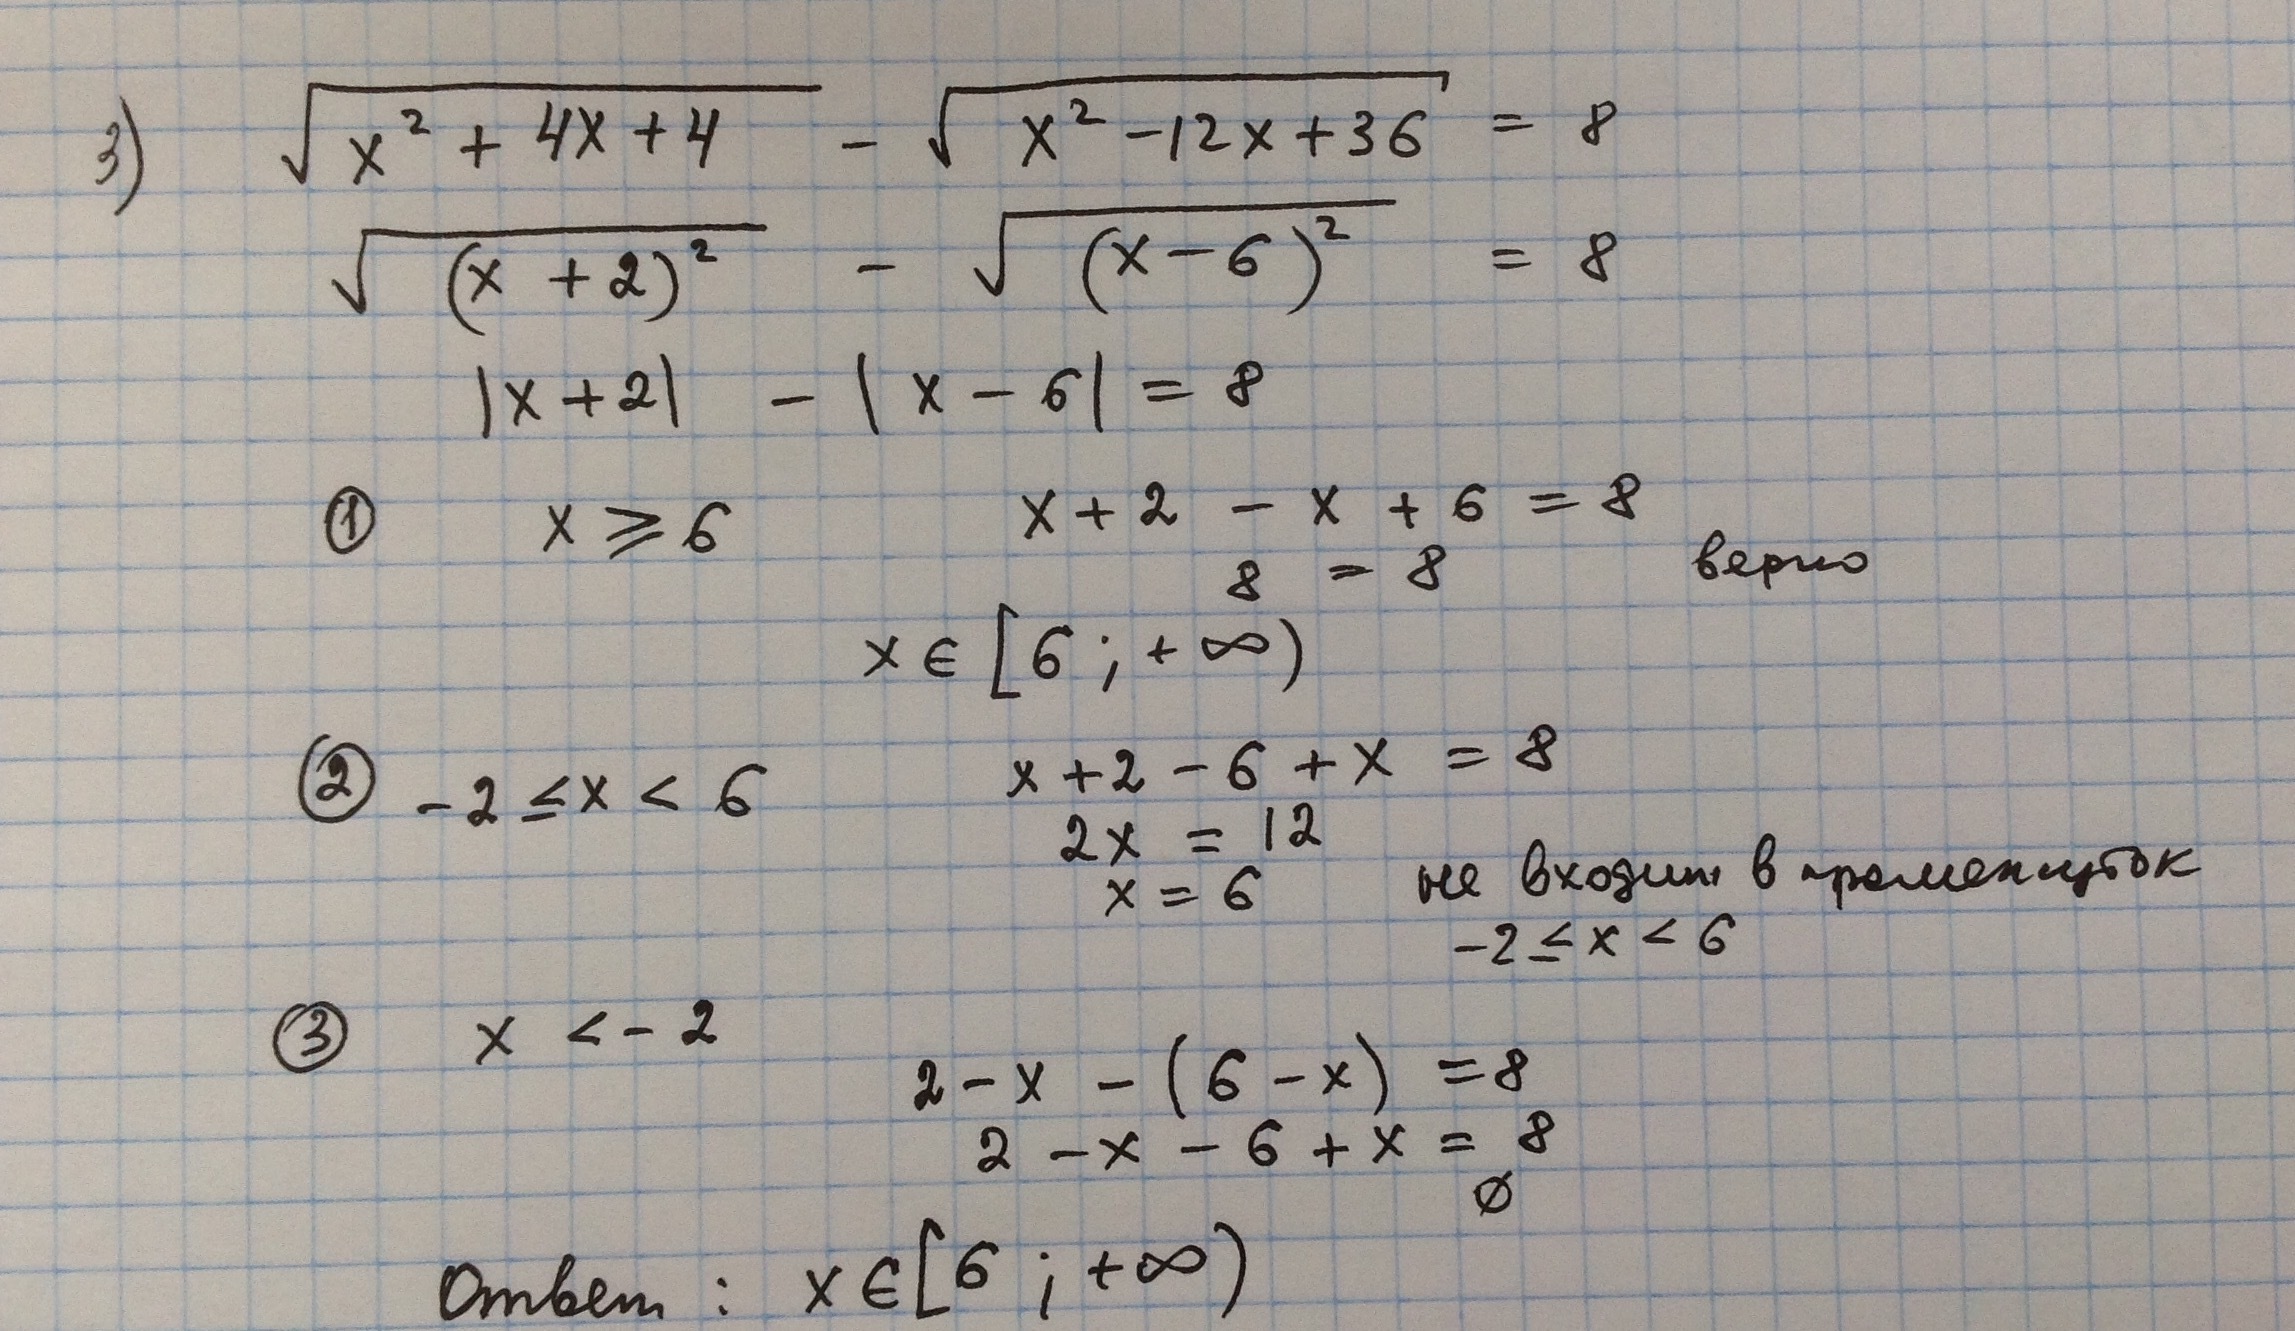 3) √(x² + 4x + 4) - √(x² - 12x + 36) = 8
√((x + 2)²) - √((x - 6)²) = 8
|x + 2| - |x - 6| = 8
① x ⩾ 6 x + 2 - x + 6 = 8
8 = 8 верно
x ∈ [6 ; + ∞)
② -2 ≤ x < 6 x + 2 - 6 + x = 8
2x = 12
x = 6 не входит в промежуток
-2 ≤ x < 6
③ x < -2
2 - x - (6 - x) = 8
2 - x - 6 + x = 8
∅
Ответ : x ∈ [6 ; + ∞)